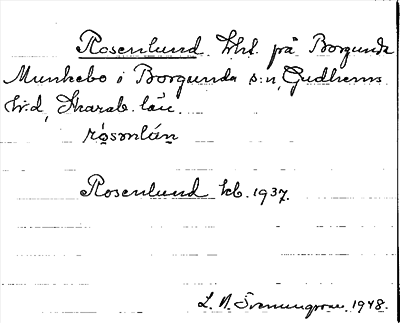 Rosenlund, lht. på Borgunda
Munkebo i Borgunda s:n, Gudhems
h:d, Skarab. län.
rósonlán
Rosenlund kb. 1937.
L. A. 1948.